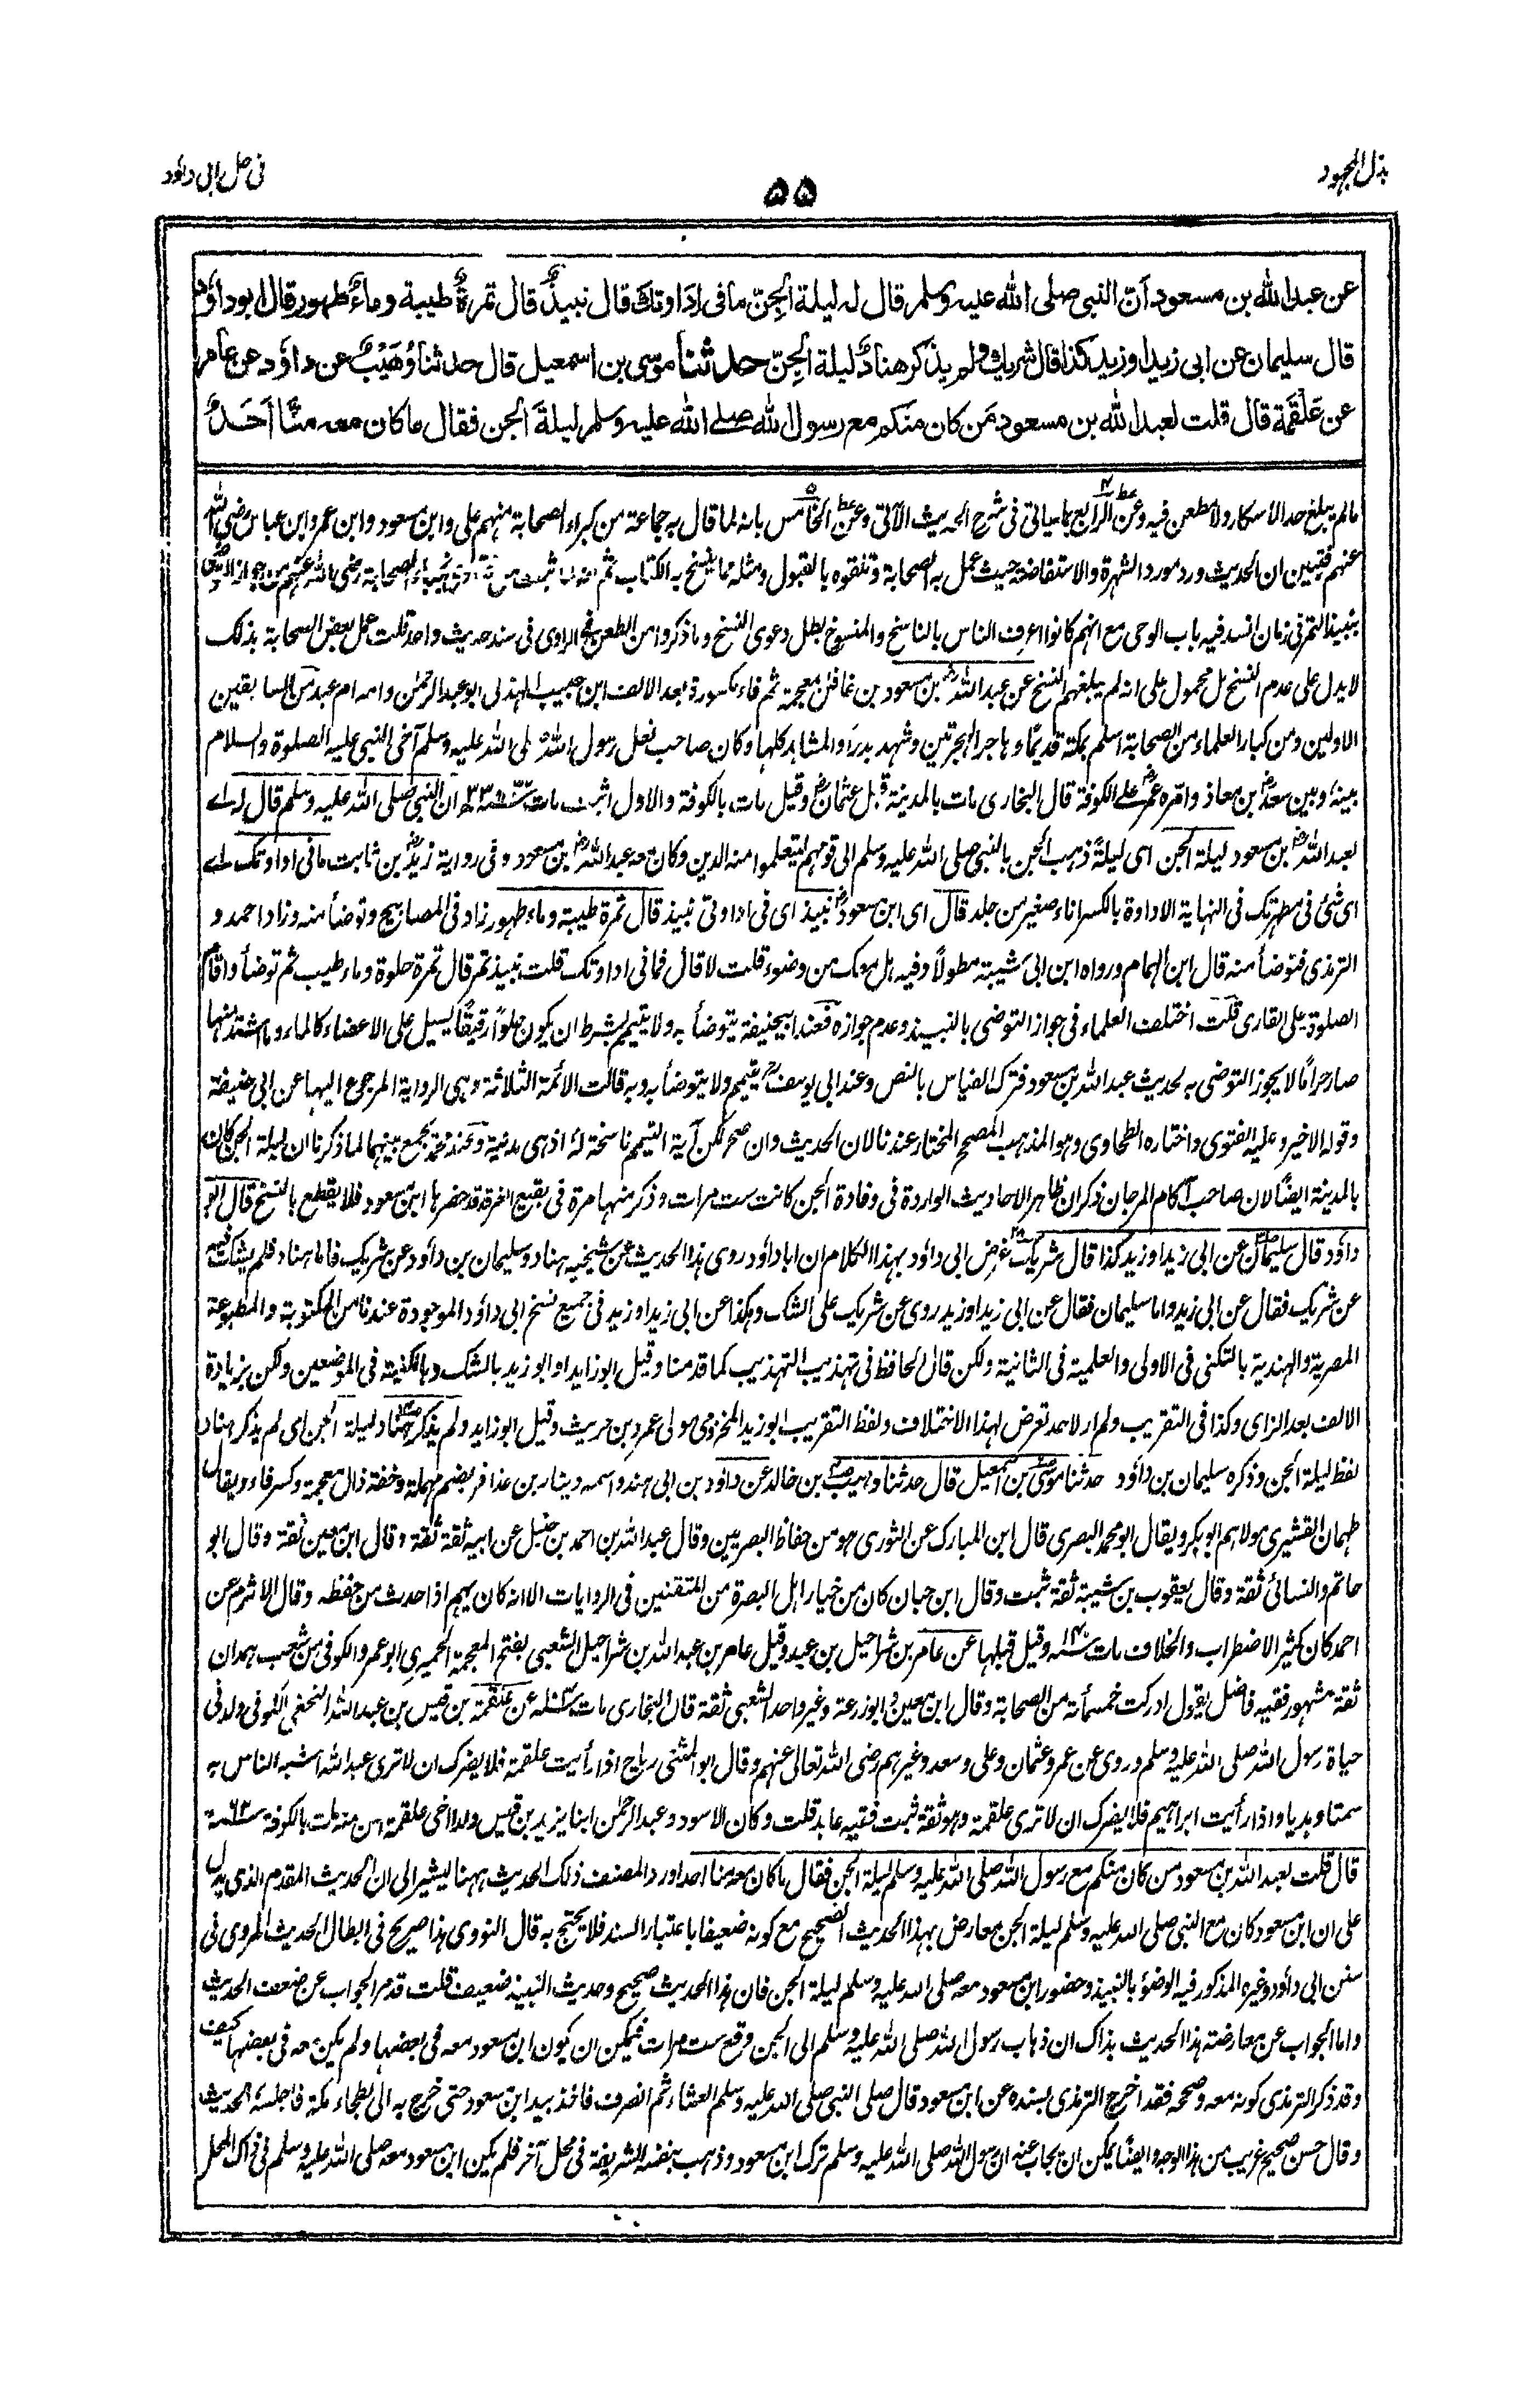 بذل المجهود
٥٥
في حل ابي داود
عن عبد الله بن مسعود أن النبي صلى الله عليه وسلم قال له ليلة الجن ما في إداوتك قال نبيذ قال تمرة طيبة وماء طهور قال ابو داود
قال سليمان عن ابي زيد او زيد كذا قال شريك ولم يذكر هناد ليلة الجن حدثنا موسى بن اسمعيل قال حدثنا وهيب عن داود عن عامر
عن علقمة قال قلت لعبد الله بن مسعود من كان منكم مع رسول الله صلى الله عليه وسلم ليلة الجن فقال ما كان معه منا أحد
مالم يبلغ حد الاسكار ولا مطعن فيه وعن الرابع بما سياتي في شرح الحديث الآتي وعن الخامس بانه لما قال به جماعة من كبراء الصحابة منهم علي وابن مسعود وابن عمر وابن عباس رضي الله
عنهم فتبين ان الحديث ورد مورد الشهرة والاستفاضة حيث عمل به الصحابة وتلقوه بالقبول ومثله مما ينسخ به الكتاب ثم الصحابة رضي الله عنهم من جواز التوضي
بنبيذ التمر في زمان انسد فيه باب الوحي مع انهم كانوا اعرف الناس بالناسخ والمنسوخ بطل دعوى النسخ وما ذكروا من الطعن في الراوي في سند حديث واحد قلت عمل بعض الصحابة بذلك
لا يدل على عدم النسخ بل محمول على انه لم يبلغهم النسخ عن عبد الله بن مسعود بن غافل بمعجمة ثم فاء مكسورة بعد الالف ابن حبيب الهذلي ابو عبد الرحمن وامه ام عبد من السابقين
الاولين ومن كبار العلماء من الصحابة اسلم بمكة قديما وهاجر الهجرتين وشهد بدرا والمشاهد كلها وكان صاحب نعل رسول الله صلى الله عليه وسلم آخى النبي عليه الصلوة والسلام
بينه وبين سعد بن معاذ وامّره عمر على الكوفة قال البخاري مات بالمدينة قبل عثمان وقيل مات بالكوفة والاول اثبت مات سنة ٣٣ ان النبي صلى الله عليه وسلم قال له اے
لعبد الله بن مسعود ليلة الجن اي ليلة ذهب الجن بالنبي صلى الله عليه وسلم الى قومهم ليتعلموا منه الدين وكان معه عبد الله بن مسعود وفي رواية زيد بن ثابت ما في اداوتك اے
اي شئ في مطهرتك في النهاية الاداوة بالكسر اناء صغير من جلد قال اي ابن مسعود نبيذ اي في اداوتي نبيذ قال تمرة طيبة وماء طهور زاد في المصابيح وتوضأ منه وزاد احمد و
الترمذي فتوضأ منه قال ابن الهمام ورواه ابن ابي شيبة مطولا وفيه هل معك من وضوء قلت لا قال فما في اداوتك قلت نبيذ تمر قال تمرة حلوة وماء طيب ثم توضأ واقام
الصلوة علي القاري قلت اختلف العلماء في جواز التوضي بالنبيذ وعدم جوازه فعند ابيحنيفة يتوضأ به ولا يتيمم بشرط ان يكون حلوا رقيقا يسيل على الاعضاء كالماء وما اشتد منها
صار حراما لا يجوز التوضي به لحديث عبد الله بن مسعود فترك القياس بالنص وعند ابي يوسف يتيمم ولا يتوضأ به وبه قالت الائمة الثلاثة وهي الرواية المرجوع اليها عن ابي حنيفة
وقوله الاخير وعليه الفتوى واختاره الطحاوي وهو المذهب المصحح المختار عندنا لان الحديث وان صح لكن آية التيمم ناسخة له اذ هي مدنية وعند محمد يجمع بينهما لما ذكرنا ان ليلة الجن كانت
بالمدينة ايضا لان صاحب آكام المرجان ذكر ان ظاهر الاحاديث الواردة في وفادة الجن كانت ست مرات وذكر منها مرة في بقيع الغرقد قد حضرها ابن مسعود فلا يقطع بالنسخ قال ابو
داود قال سليمان عن ابي زيد او زيد كذا قال شريك غرض ابي داود بهذا الكلام ان ابا داود روى هذا الحديث عن شيخيه هناد وسليمان بن داود عن شريك فاما هناد فلم يشك فيه
عن شريك فقال عن ابي زيد واما سليمان فقال عن ابي زيد او زيد روى عن شريك على الشك وهكذا عن ابي زيد او زيد في جميع نسخ ابي داود الموجودة عندنا من المكتوبة والمطبوعة
المصرية والهندية بالتكني في الاولى والعلمية في الثانية ولكن قال الحافظ في تهذيب التهذيب كما قدمنا وقيل ابو زايد او ابو زيد بالشك وبالكنية في الموضعين ولكن بزيادة
الالف بعد الزاي وكذا في التقريب ولم ار لاحد تعرض لهذا الاختلاف ولفظ التقريب ابو زيد المخزومي مولى عمرو بن حريث وقيل ابو زايد ولم يذكر هناد ليلة الجن اي لم يذكر هناد
لفظ ليلة الجن وذكره سليمان بن داود حدثنا موسى بن اسمعيل قال حدثنا وهيب بن خالد عن داود بن ابي هند واسمه دينار بن عذافر بضم مهملة وخفة ذال معجمة وكسر فاء ويقال
طهمان القشيري مولاهم ابو بكر ويقال ابو محمد البصري قال ابن المبارك عن الثوري هو من حفاظ البصريين وقال عبد الله بن احمد بن حنبل عن ابيه ثقة ثقة وقال ابن معين ثقة وقال ابو
حاتم والنسائي ثقة وقال يعقوب بن شيبة ثقة ثبت وقال ابن حبان كان من خيار اهل البصرة من المتقنين في الروايات الا انه كان يهم اذا حدث من حفظه وقال الاثرم عن
احمد كان كثير الاضطراب والخلاف مات سنة ١٤٠ وقيل قبلها عن عامر بن شراحيل بن عبد وقيل عامر بن عبد الله بن شراحيل الشعبي بفتح المعجمة الحميري ابو عمرو الكوفي من شعب همدان
ثقة مشهور فقيه فاضل يقول ادركت خمسمأئة من الصحابة وقال ابن معين وابو زرعة وغير واحد الشعبي ثقة قال البخاري مات سنة عن علقمة بن قيس بن عبد الله النخعي الكوفي ولد في
حياة رسول الله صلى الله عليه وسلم وروى عن عمر وعثمان وعلي وسعد وغيرهم رضي الله تعالى عنهم وقال ابو المثنى رباح اذا رأيت علقمة فلا يضرك ان لا ترى عبد الله اشبه الناس به
سمتا وهديا واذا رأيت ابراهيم فلا يضرك ان لا ترى علقمة وهو ثقة ثبت فقيه عابد قلت وكان الاسود وعبد الرحمن ابنا يزيد بن قيس ولدا اخي علقمة اسن منه مات بالكوفة سنة ٦٢
قال قلت لعبد الله بن مسعود من كان منكم مع رسول الله صلى الله عليه وسلم ليلة الجن فقال ما كان معه منا احد اورد المصنف ذلك الحديث ههنا ليشير الى ان الحديث المقدم الذي يدل
على ان ابن مسعود كان مع النبي صلى الله عليه وسلم ليلة الجن معارض بهذا الحديث الصحيح مع كونه ضعيفا باعتبار السند فلا يحتج به قال النووي هذا صريح في ابطال الحديث المروي في
سنن ابي داود وغيره المذكور فيه الوضوء بالنبيذ وحضور ابن مسعود معه صلى الله عليه وسلم ليلة الجن فان هذا الحديث صحيح وحديث النبيذ ضعيف قلت قد مر الجواب عن ضعف الحديث
واما الجواب عن معارضته هذا الحديث بذاك ان ذهاب رسول الله صلى الله عليه وسلم الى الجن وقع ست مرات فيمكن ان يكون ابن مسعود معه في بعضها ولم يكن معه في بعضها كيف
وقد ذكر الترمذي كونه معه وصححه فقد اخرج الترمذي بسنده عن ابن مسعود قال صلى النبي صلى الله عليه وسلم العشاء ثم انصرف فاخذ بيد ابن مسعود حتى خرج به الى بطحاء مكة فاجلسه الحديث
وقال حسن صحيح غريب من هذا الوجه وايضا يمكن ان يجاب عنه ان رسول الله صلى الله عليه وسلم ترك ابن مسعود وذهب بنفسه الشريفة في محل آخر فلم يكن ابن مسعود معه صلى الله عليه وسلم في ذاك المحل